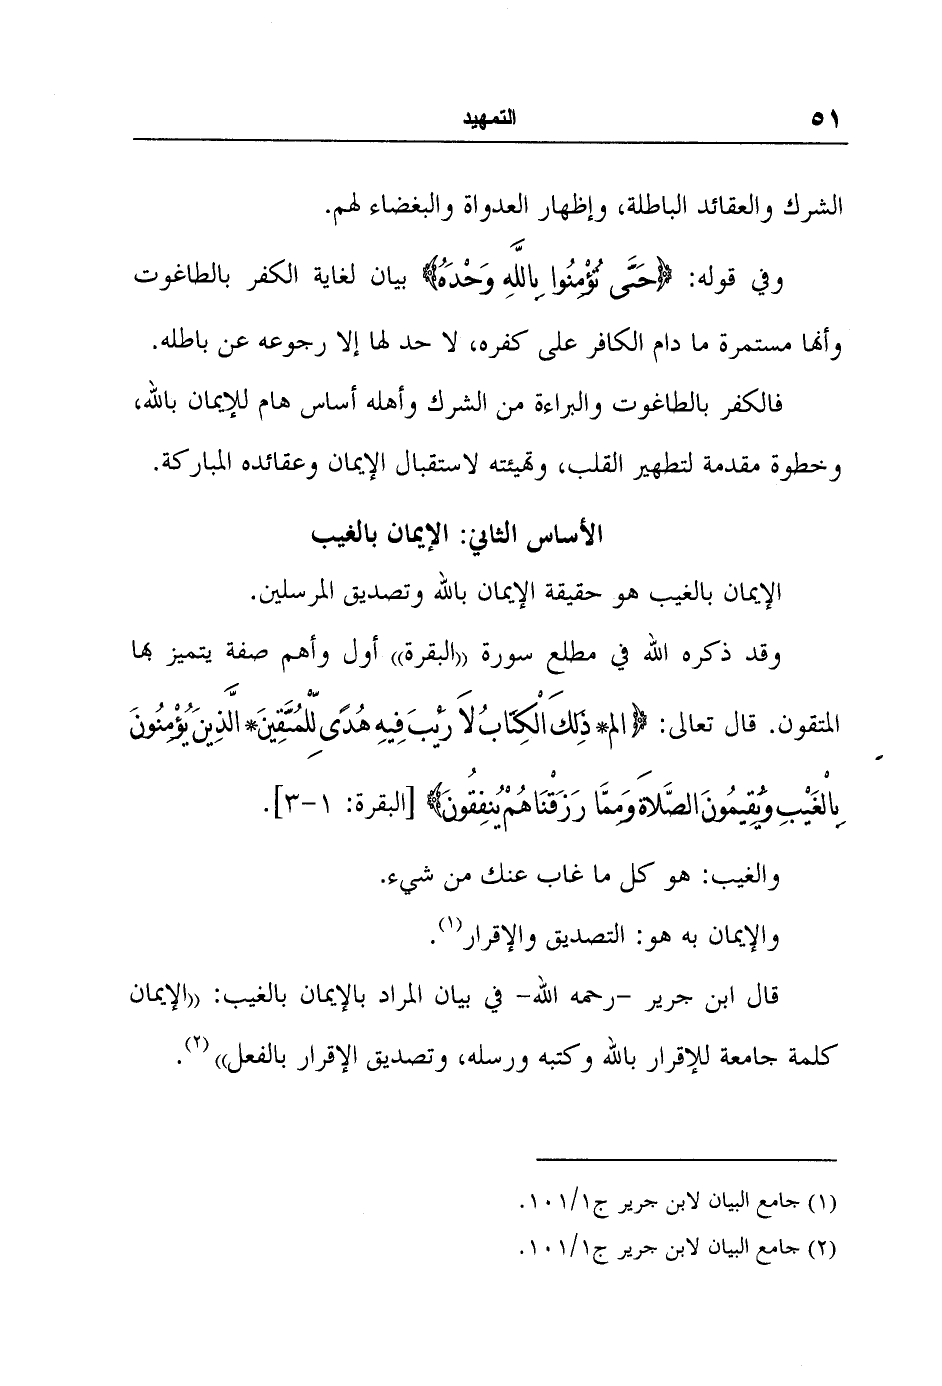 ٥١ التمهيد
الشرك والعقائد الباطلة، وإظهار العدواة والبغضاء لهم.
وفي قوله: ﴿حَتَّى تُؤْمِنُوا بِاللَّهِ وَحْدَهُ﴾ بيان لغاية الكفر بالطاغوت
وأنها مستمرة ما دام الكافر على كفره، لا حد لها إلا رجوعه عن باطله.
فالكفر بالطاغوت والبراءة من الشرك وأهله أساس هام للإيمان بالله،
وخطوة مقدمة لتطهير القلب، وتهيئته لاستقبال الإيمان وعقائده المباركة.
الأساس الثاني: الإيمان بالغيب
الإيمان بالغيب هو حقيقة الإيمان بالله وتصديق المرسلين.
وقد ذكره الله في مطلع سورة ((البقرة)) أول وأهم صفة يتميز بها
المتقون. قال تعالى: ﴿الم* ذَلِكَ الْكِتَابُ لَا رَيْبَ فِيهِ هُدًى لِّلْمُتَّقِينَ* الَّذِينَ يُؤْمِنُونَ
بِالْغَيْبِ وَيُقِيمُونَ الصَّلَاةَ وَمِمَّا رَزَقْنَاهُمْ يُنفِقُونَ﴾ [البقرة: ١-٣].
والغيب: هو كل ما غاب عنك من شيء.
والإيمان به هو: التصديق والإقرار(١).
قال ابن جرير -رحمه الله- في بيان المراد بالإيمان بالغيب: ((الإيمان
كلمة جامعة للإقرار بالله وكتبه ورسله، وتصديق الإقرار بالفعل))(٢).
(١) جامع البيان لابن جرير ج١/١٠١.
(٢) جامع البيان لابن جرير ج١/١٠١.